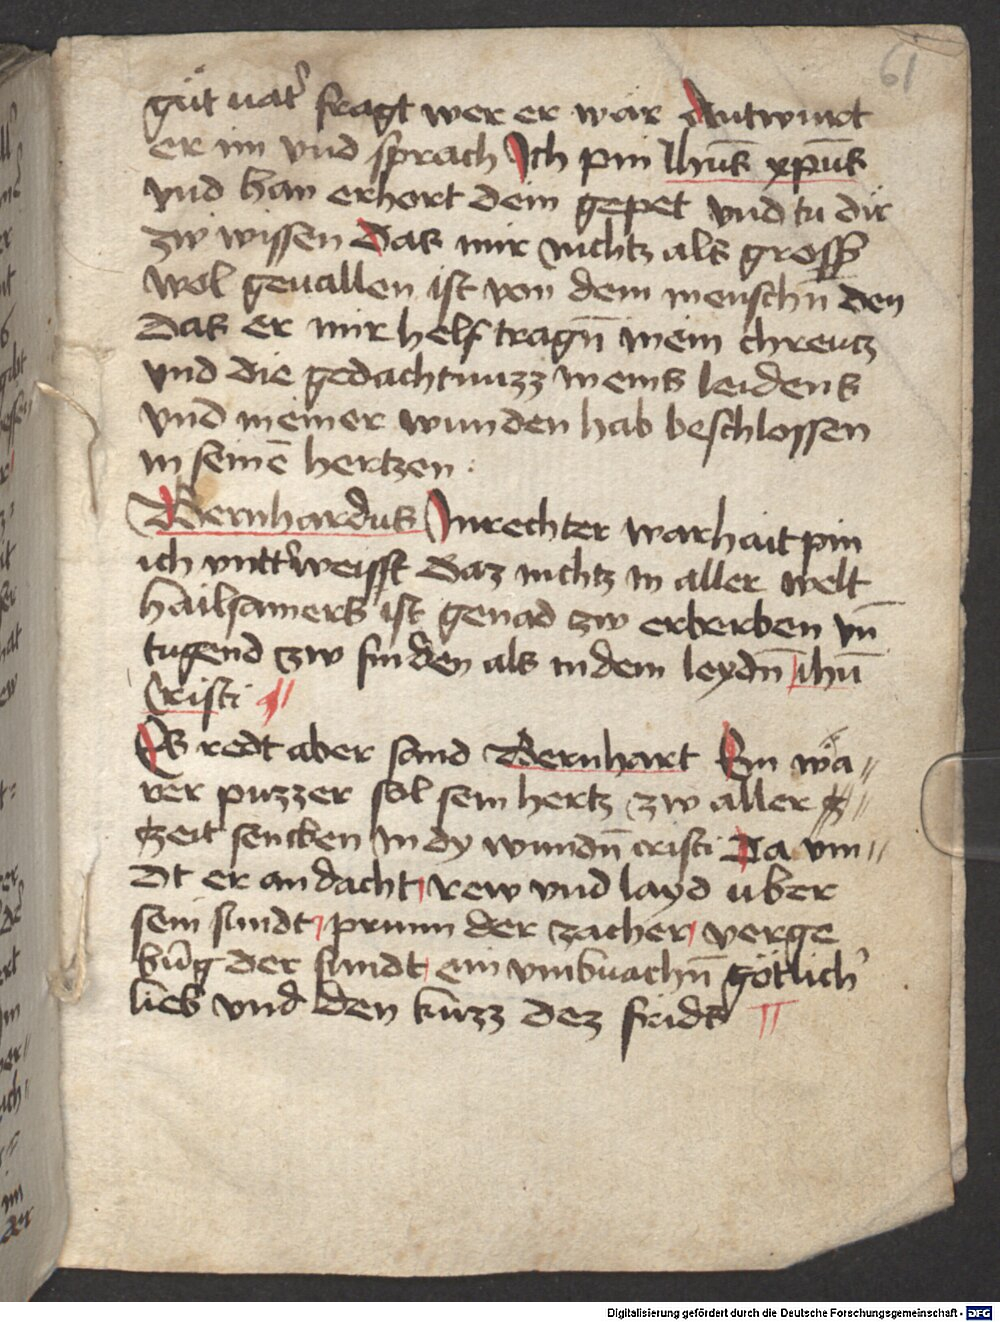 61
güt uatˀ fragt wer er wär Antwurt
er im vnd sprach Ich pin Ihūs xpūs
vnd han erhort dein gepet vnd tu dir
zw wissen Das mir nichtz als grosſ
wol geuallen ist von dem menschn̄ den
Das er mir helf tragn̄ mein chreutz
vnd die gedachtnuzz meins leidens
vnd meiner wunden hab beschlossen
in seinē hertzen :
Bernhardus In rechter warhait pin
ich vnttˀweisst Daz nichtz in aller welt
hailsamers ist genad zw erberben vn̄
tugend zw finden als in dem leydn̄ ihū
Cristi
Es redt aber sand Bernhart Ein wa //
rer puzzer sol sein hertz zw aller
tzeit sencken in dy wundn̄ cristi Da vin //
dt er andacht rew vnd layd uber
sein sundt prunn der zacher verge
būg der sundt ein vmbuachn̄ götlichˀ
lieb vnd den kuzz dez frids
Digitalisierung gefördert durch die Deutsche Forschungsgemeinschaft - DFG